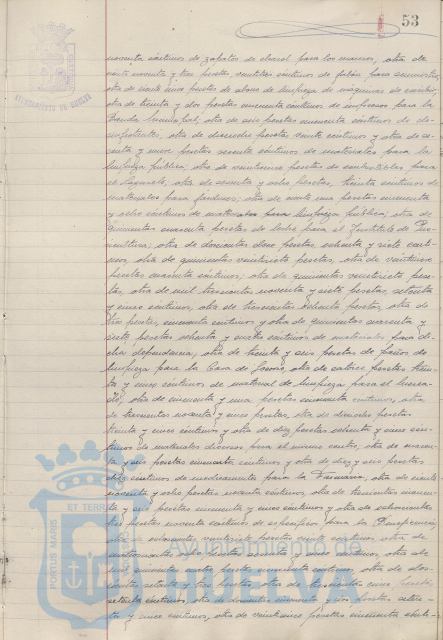 53
AYUNTAMIENTO DE HUELVA
noventa céntimos de zapatos de charol para los maceros, otra de
ciento noventa y tres pesetas veintiseis céntimos de jabón para
otra de ciento cinco pesetas de abono de limpieza de máquinas de escribir,
otra de treinta y dos pesetas cincuenta céntimos de impresos para la
Banda Municipal, otra de seis pesetas cincuenta céntimos de de-
sinfectantes, otra de dieciocho pesetas veinte céntimos y otra de se-
senta y nueve pesetas sesenta céntimos de materiales para la
limpieza pública, otra de veinticinco pesetas de combustibles para
el otra de sesenta y ocho pesetas, treinta céntimos de
materiales para jardines; otra de ciento una pesetas cincuenta
y ocho céntimos de materiales para limpieza pública; otra de
quinientas cuarenta pesetas de leche para el Instituto de Pue-
ricultura; otra de doscientas doce pesetas, ochenta y siete cént-
imos, otra de quinientas veintisiete pesetas, otra de veintinueve
pesetas cuarenta céntimos; otra de quinientas veintisiete pese-
tas, otra de mil trescientas noventa y siete pesetas, setenta
y cinco céntimos, otra de trescientas ochenta pesetas, otra de
tres pesetas, cincuenta céntimos y otra de quinientas cuarenta y
siete pesetas ochenta y cuatro céntimos de materiales para di-
cha dependencia, otra de treinta y seis pesetas de paños de
limpieza para la Casa de Socorro, otra de catorce pesetas trein-
ta y cinco céntimos de material de limpieza para el Merca-
do, otra de cincuenta y una pesetas cincuenta céntimos, otra
de trescientas noventa y cinco pesetas, otra de pesetas
treinta y cinco céntimos y otra de diez pesetas setenta y cinco cén-
timos de materiales diversos para el mismo centro, otra de
y seis pesetas cincuenta céntimos y otra de diez y seis pesetas
céntimos de medicamentos para la Farmacia, otra de ciento
noventa y ocho pesetas noventa céntimos, otra de trescientas cincuen-
ta y seis pesetas cincuenta y cinco céntimos y otra de ochocientas
tres pesetas noventa céntimos de específicos para la Beneficencia,
otra veintisiete pesetas veinte céntimos, otra de
otra de
pesetas cincuenta céntimos, otra de dos-
cientas setenta y tres pesetas, otra de trescientas cinco pesetas
setenta céntimos, otra de doscientas cincuenta y dos pesetas seten-
ta y cinco céntimos, otra de veinticinco pesetas cincuenta cénti-
PORTUS MARIS ET TERRAE
Ayuntamiento de
HUELVA